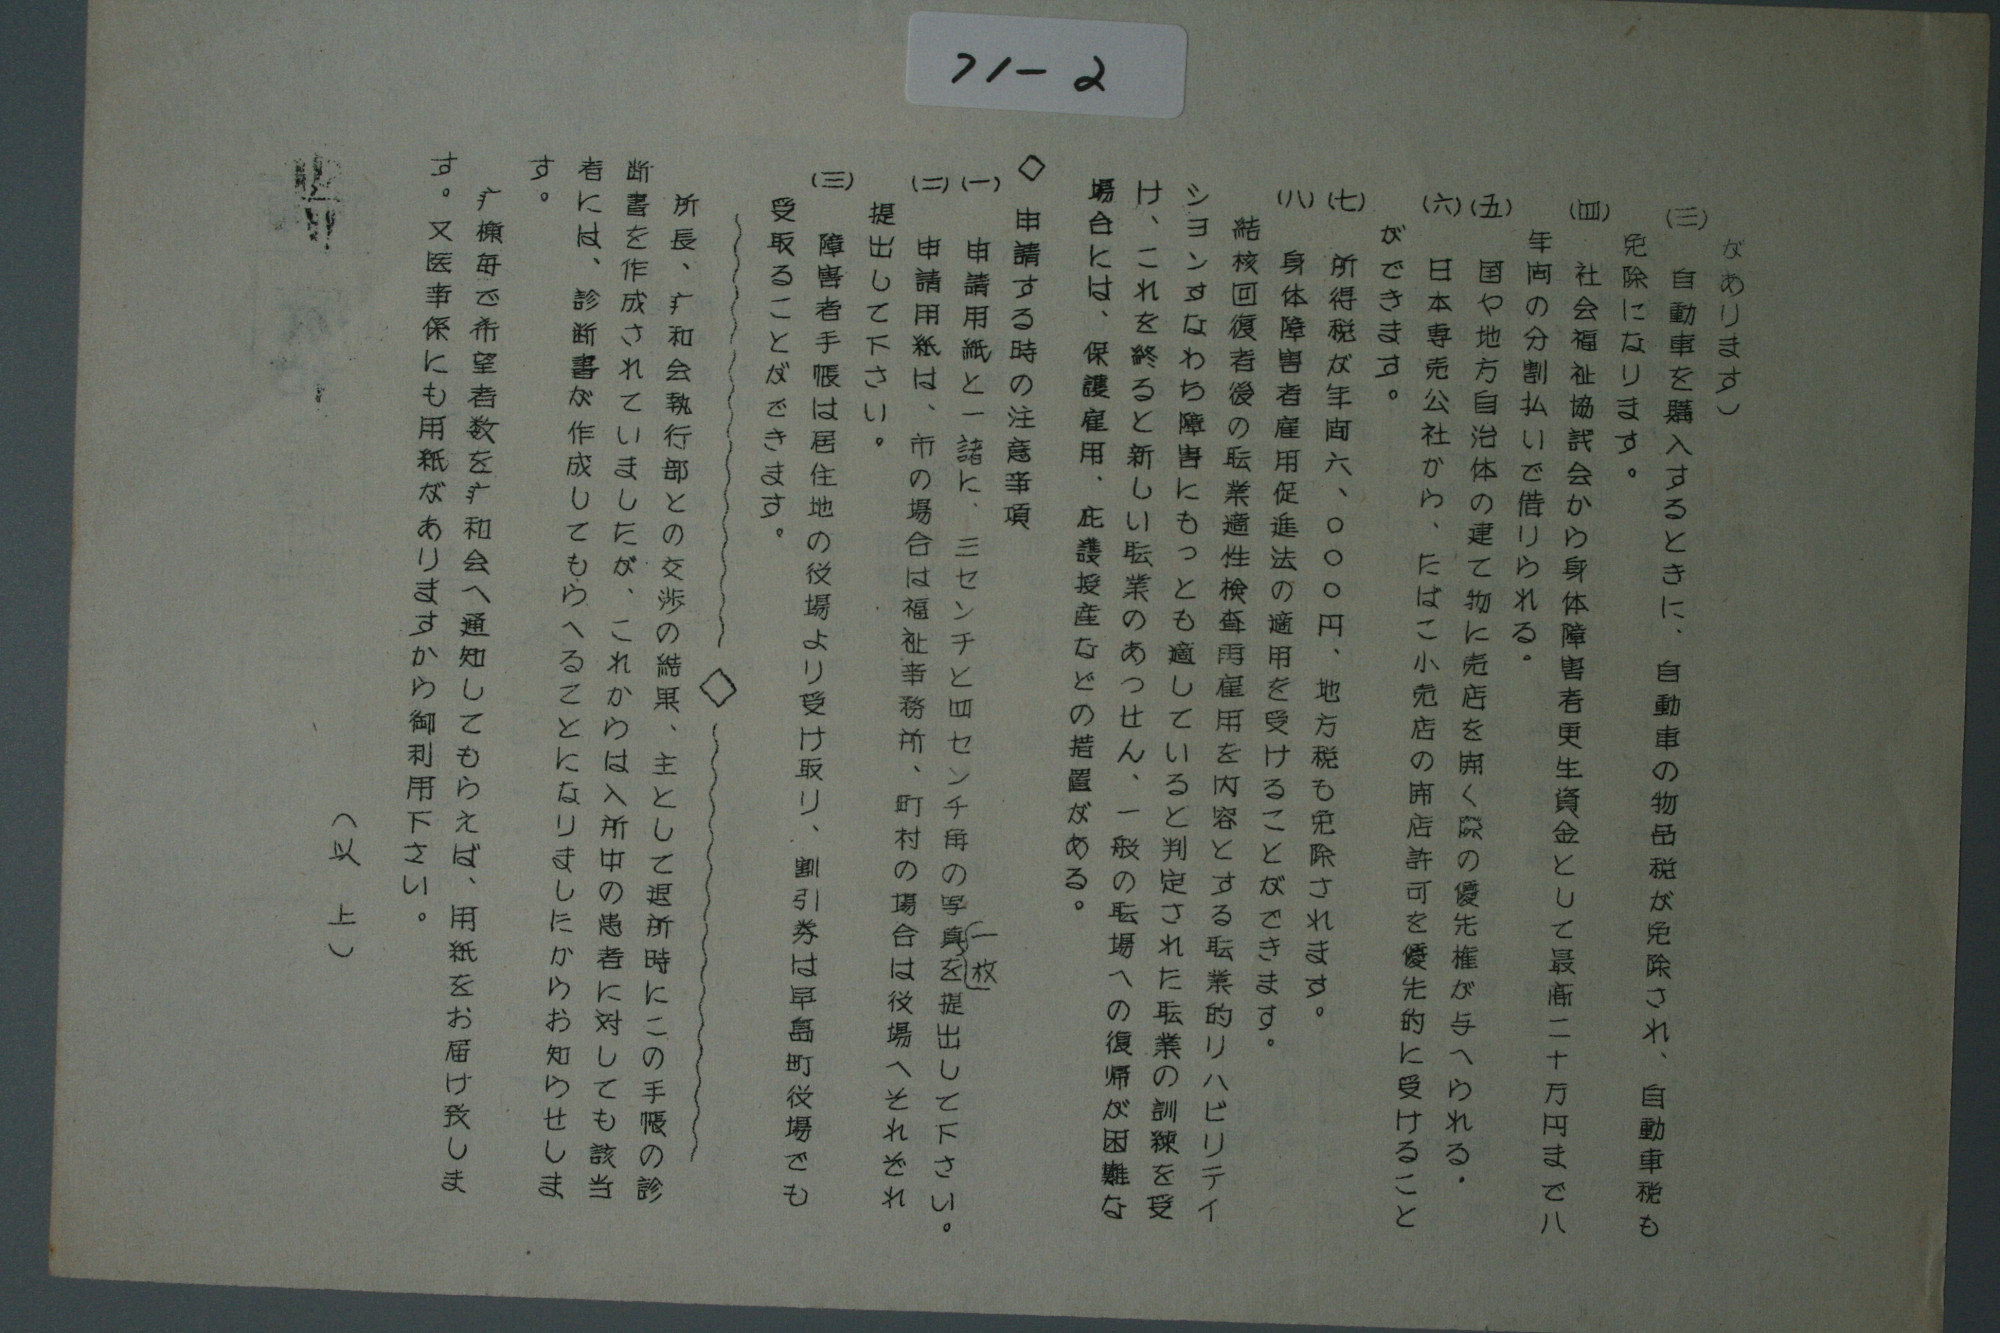 71-2
があります)
(三) 自動車を購入するときに、自動車の物品税が免除され、自動車税も
免除になります。
(四) 社会福祉協議会から身体障害者更生資金として最高二十万円まで八
年間の分割払いで借りられる。
(五) 国や地方自治体の建て物に売店を開く際の優先権が与へられる。
(六) 日本専売公社から、たばこ小売店の開店許可を優先的に受けること
ができます。
(七) 所得税が年間六、〇〇〇円、地方税も免除されます。
(八) 身体障害者雇用促進法の適用を受けることができます。
結核回復者後の転業適性検査雨雇用を内容とする転業的リハビリテイ
シヨンすなわち障害にもっとも適していると判定された転業の訓練を受
け、これを終ると新しい転業のあっせん、一般の転場への復帰が困難な
場合には、保護雇用、庇護授産などの措置がある。
◇ 申請する時の注意事項
(一) 申請用紙と一諸に、三センチと四センチ角の写真(一枚)を提出して下さい。
(二) 申請用紙は、市の場合は福祉事務所、町村の場合は役場へそれぞれ
提出して下さい。
(三) 障害者手帳は居住地の役場より受け取り、割引券は早島町役場でも
受取ることができます。
◇
所長、疒和会執行部との交渉の結果、主として退所時にこの手帳の診
断書を作成されていましたが、これからは入所中の患者に対しても該当
者には、診断書が作成してもらへることになりましたからお知らせしま
す。
疒棟毎で希望者数を疒和会へ通知してもらえば、用紙をお届け致しま
す。又医事係にも用紙がありますから御利用下さい。
(以上)